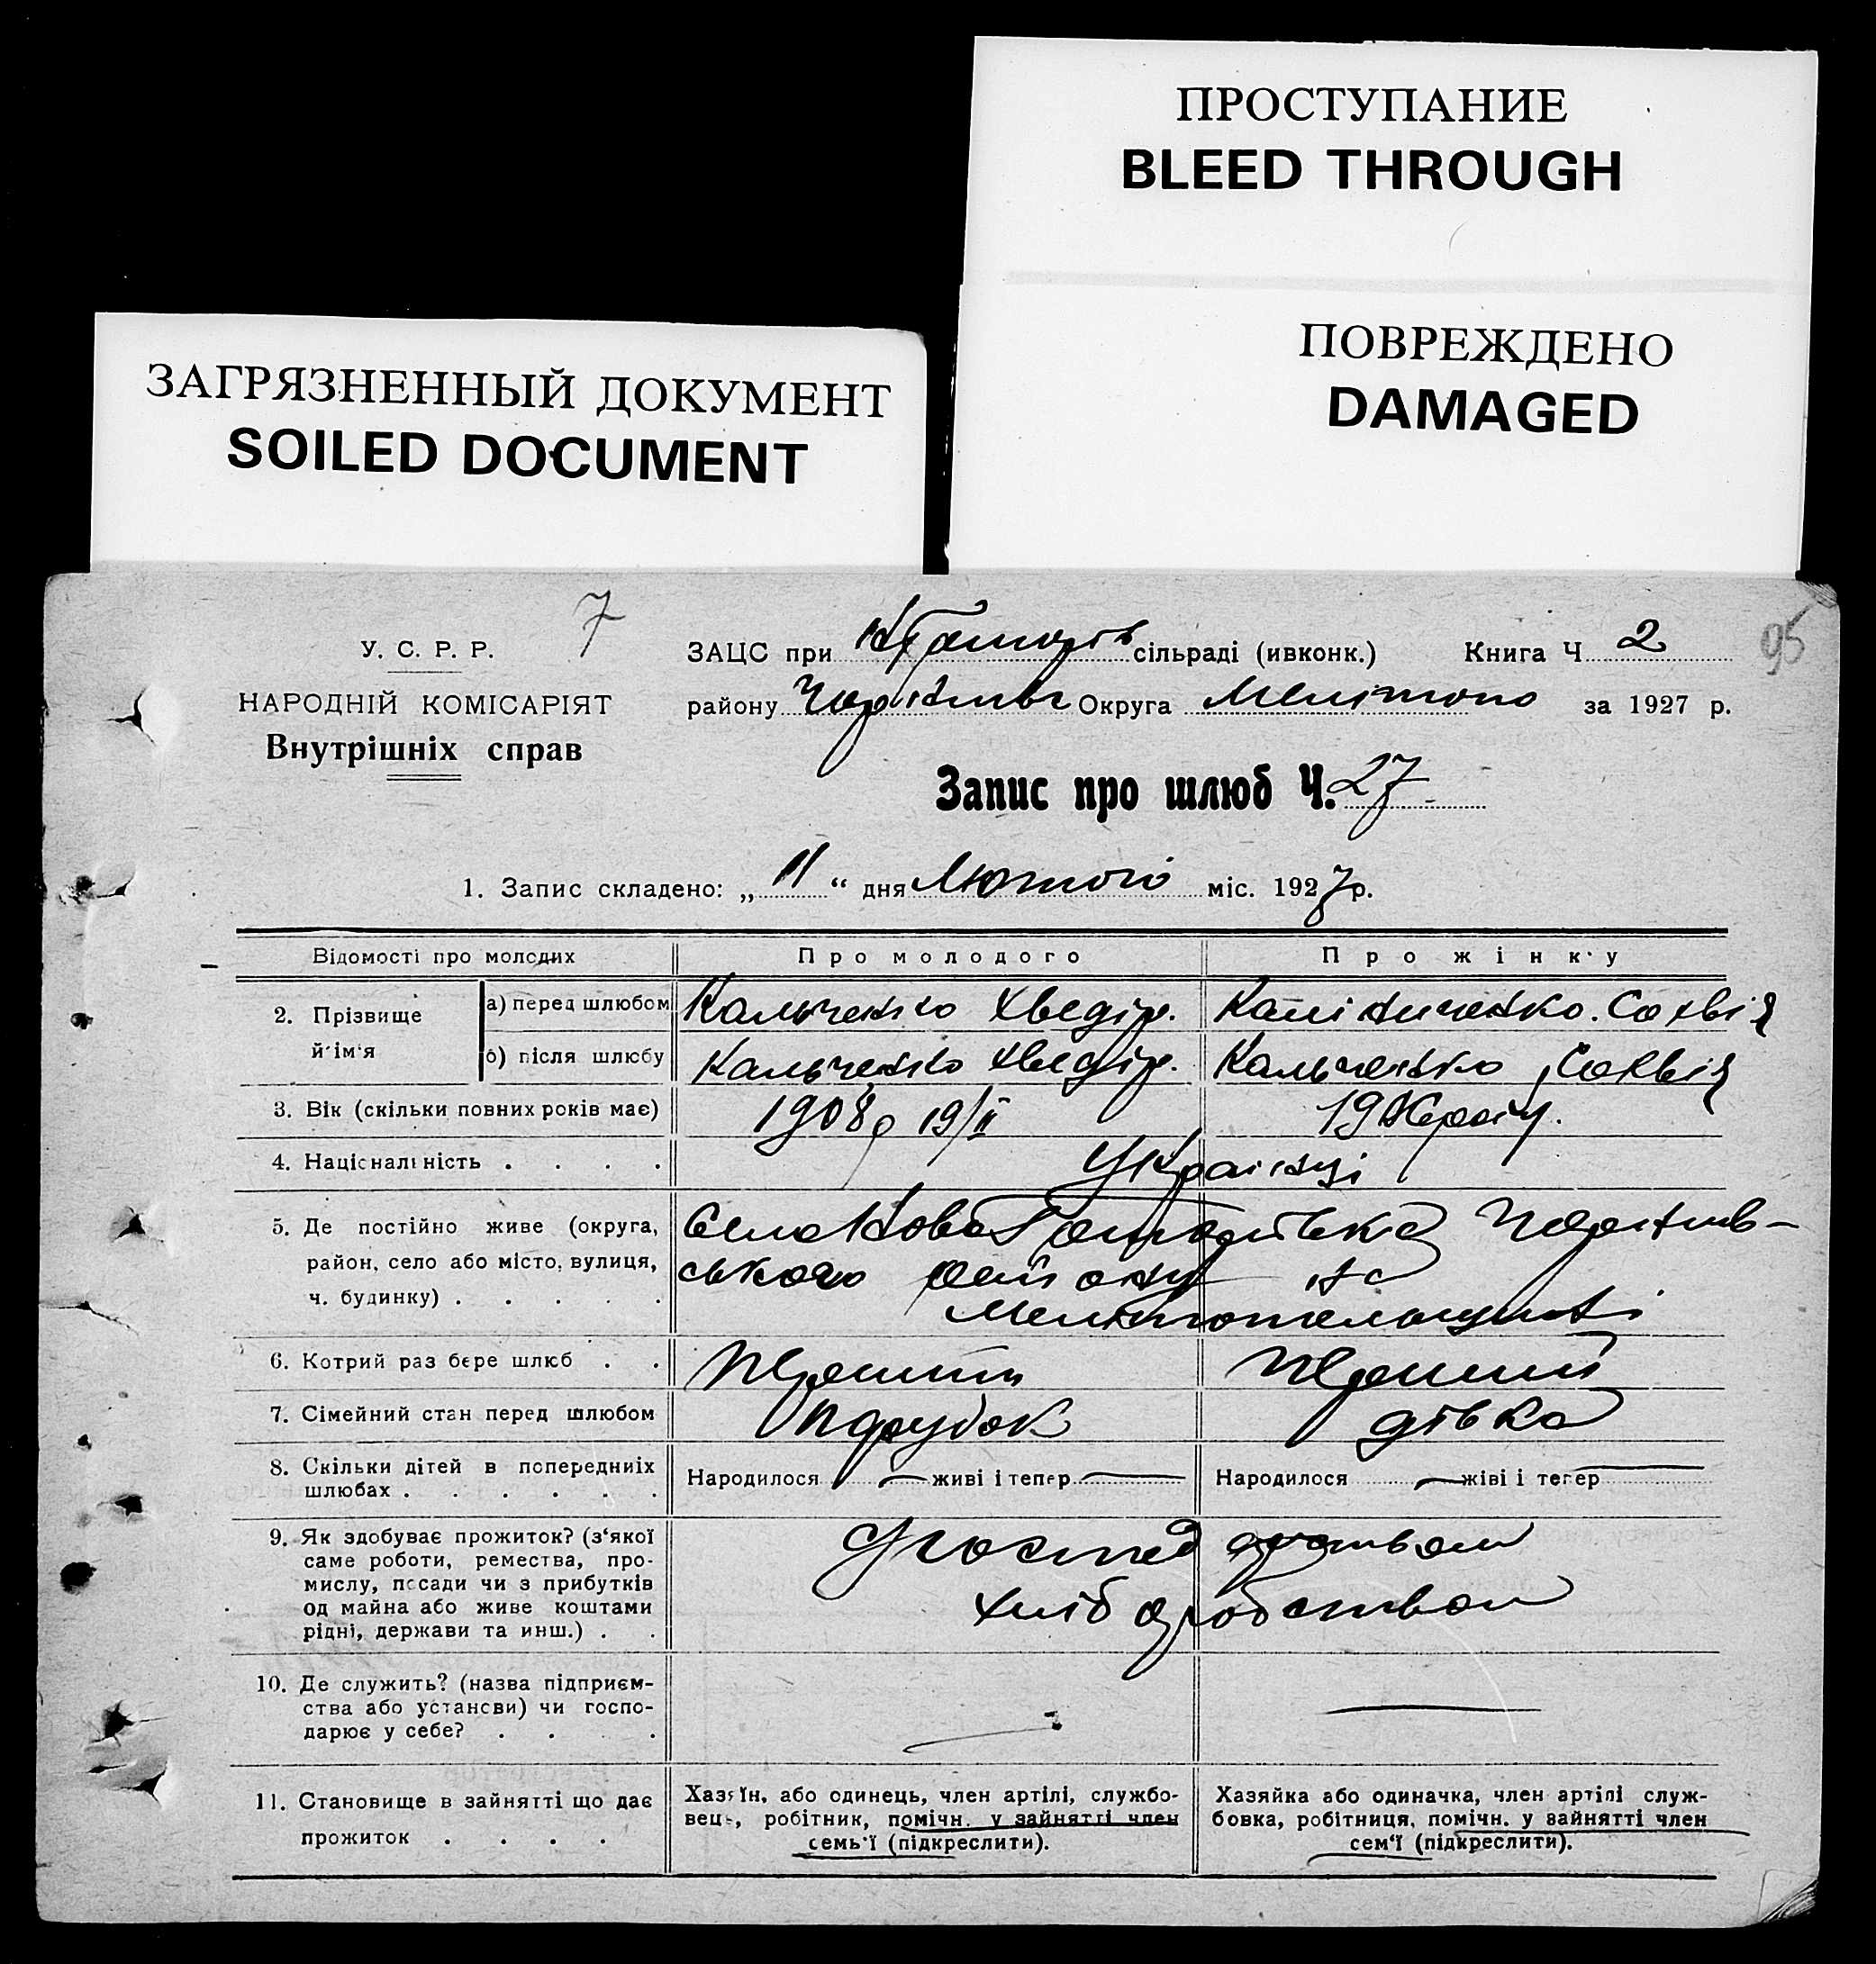 ПРОСТУПАНИЕ
BLEED THROUGH
ПОВРЕЖДЕНО
DAMAGED
ЗАГРЯЗНЕННЫЙ ДОКУМЕНТ
SOILED DOCUMENT
7
95
У. С. Р. Р.
НАРОДНІЙ КОМІСАРІЯТ
Внутрішніх справ
ЗАЦС при сільраді (ивконк.) Книга Ч 2
району Округа Мелітопо за 1927 р.
Запис про шлюб Ч. 27
1. Запис складено: „ 11 “ дня Лютого міс. 1927 р.
Відомості про молодих Про молодого Про жінку
2. Прізвище й ім'я
а) перед шлюбом Кальченко Хведір. Калініченко. Сохвія
б) після шлюбу Кальченко Хведір. Кальченко Сохвія
3. Вік (скільки повних років має) 1908 р 19/II 19
4. Національність . . . . Українці
5. Де постійно живе (округа, Село Ново
район, село або місто, вулиця, ського району на
ч. будинку) . . . . . Мелітопольщині
6. Котрий раз бере шлюб . . Перший Перший
7. Сімейний стан перед шлюбом Парубок дівка
8. Скільки дітей в попередниіх Народилося — живі і тепер — Народилося — жіві і тепер —
шлюбах . . . . . .
9. Як здобуває прожиток? (з'якої
саме роботи, ремества, про-
мислу, посади чи з прибутків
од майна або живе коштами
рідні, держави та инш.) . .
хліборобством
10. Де служить? (назва підприєм-
ства або устансви) чи госпо-
дарює у себе? . . .
11. Становище в зайнятті що дає
прожиток . . . .
Хазяїн, або одинець, член артілі, службо-
вець, робітник, помічн. у зайнятті член
семь'ї (підкреслити).
Хазяйка або одиначка, член артілі служ-
бовка, робітниця, помічн. у зайнятті член
сем'ї (підкреслити).